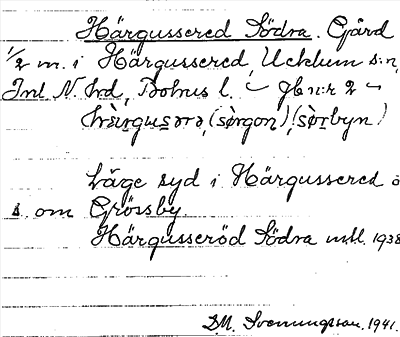 Härgussered Södra. Gård
1/2 m. i Härgussered, Ucklum s:n,
Inl N. hd, Bohus l. – Jb n:r 2 –
hàrgusərə, (sørgon), (sørbyn)
Läge syd i Härgussered o
s. om Grössby
Härgusseröd Södra mtl. 1938
D.M. Svenungsson. 1941.